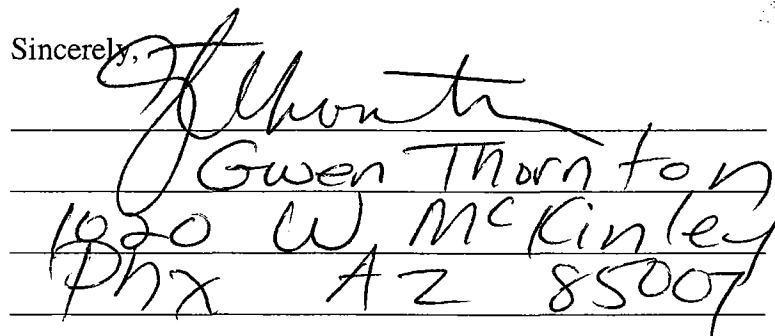 Sincerely,
Gwen Thornton
1020 W McKinley
Phx AZ 85007